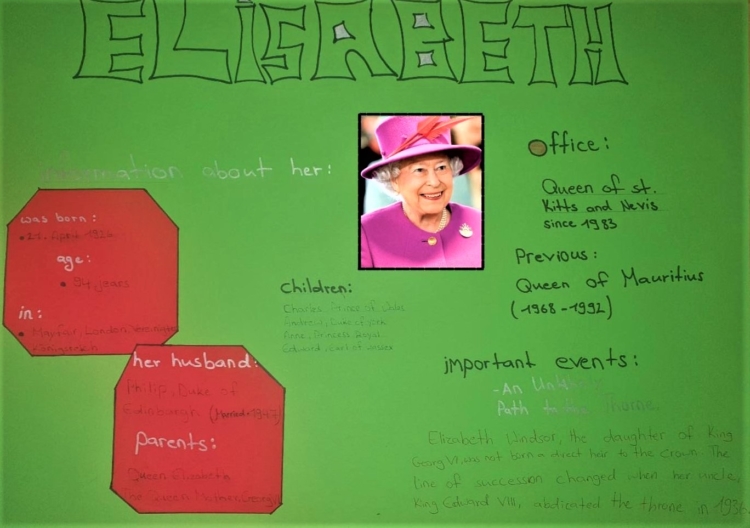 ELISABETH
Information about her:
was born:
• 21. April 1926
age:
• 94 years
in:
• Mayfair, London, Vereinigtes
Königreich
her husband:
Philip, Duke of
Edinburgh (Married 1947)
Parents:
Queen Elizabeth
The Queen Mother, George VI
Children:
Charles, Prince of Wales
Andrew, Duke of York
Anne, Princess Royal
Edward, Earl of Wessex
Office:
Queen of st.
Kitts and Nevis
since 1983
Previous:
Queen of Mauritius
(1968-1992)
important events:
-An Unlikely
Path to the Thorne
Elizabeth Windsor, the daughter of King
Georg VI, was not born a direct heir to the crown. The
line of succession changed when her uncle,
King Edward VIII, abdicated the throne in 1936